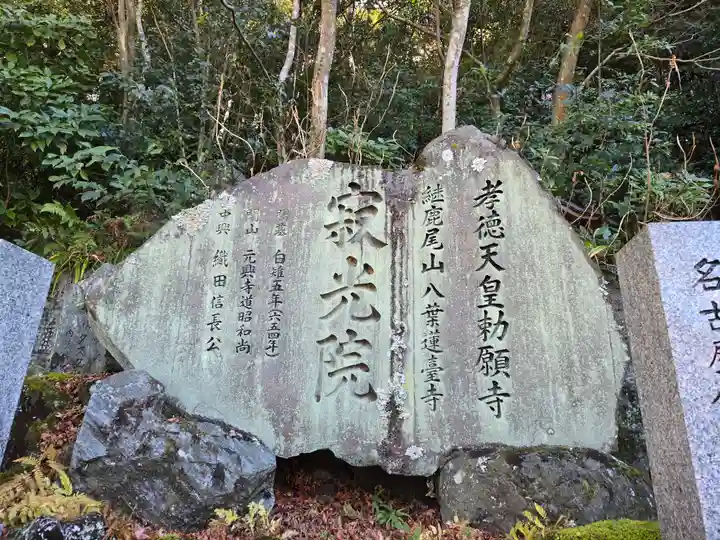 孝徳天皇勅願寺
継鹿尾山八葉蓮臺寺
寂光院
創基 白雉五年(六五四年)
開山 元興寺道昭和尚
中興 織田信長公
名古屋